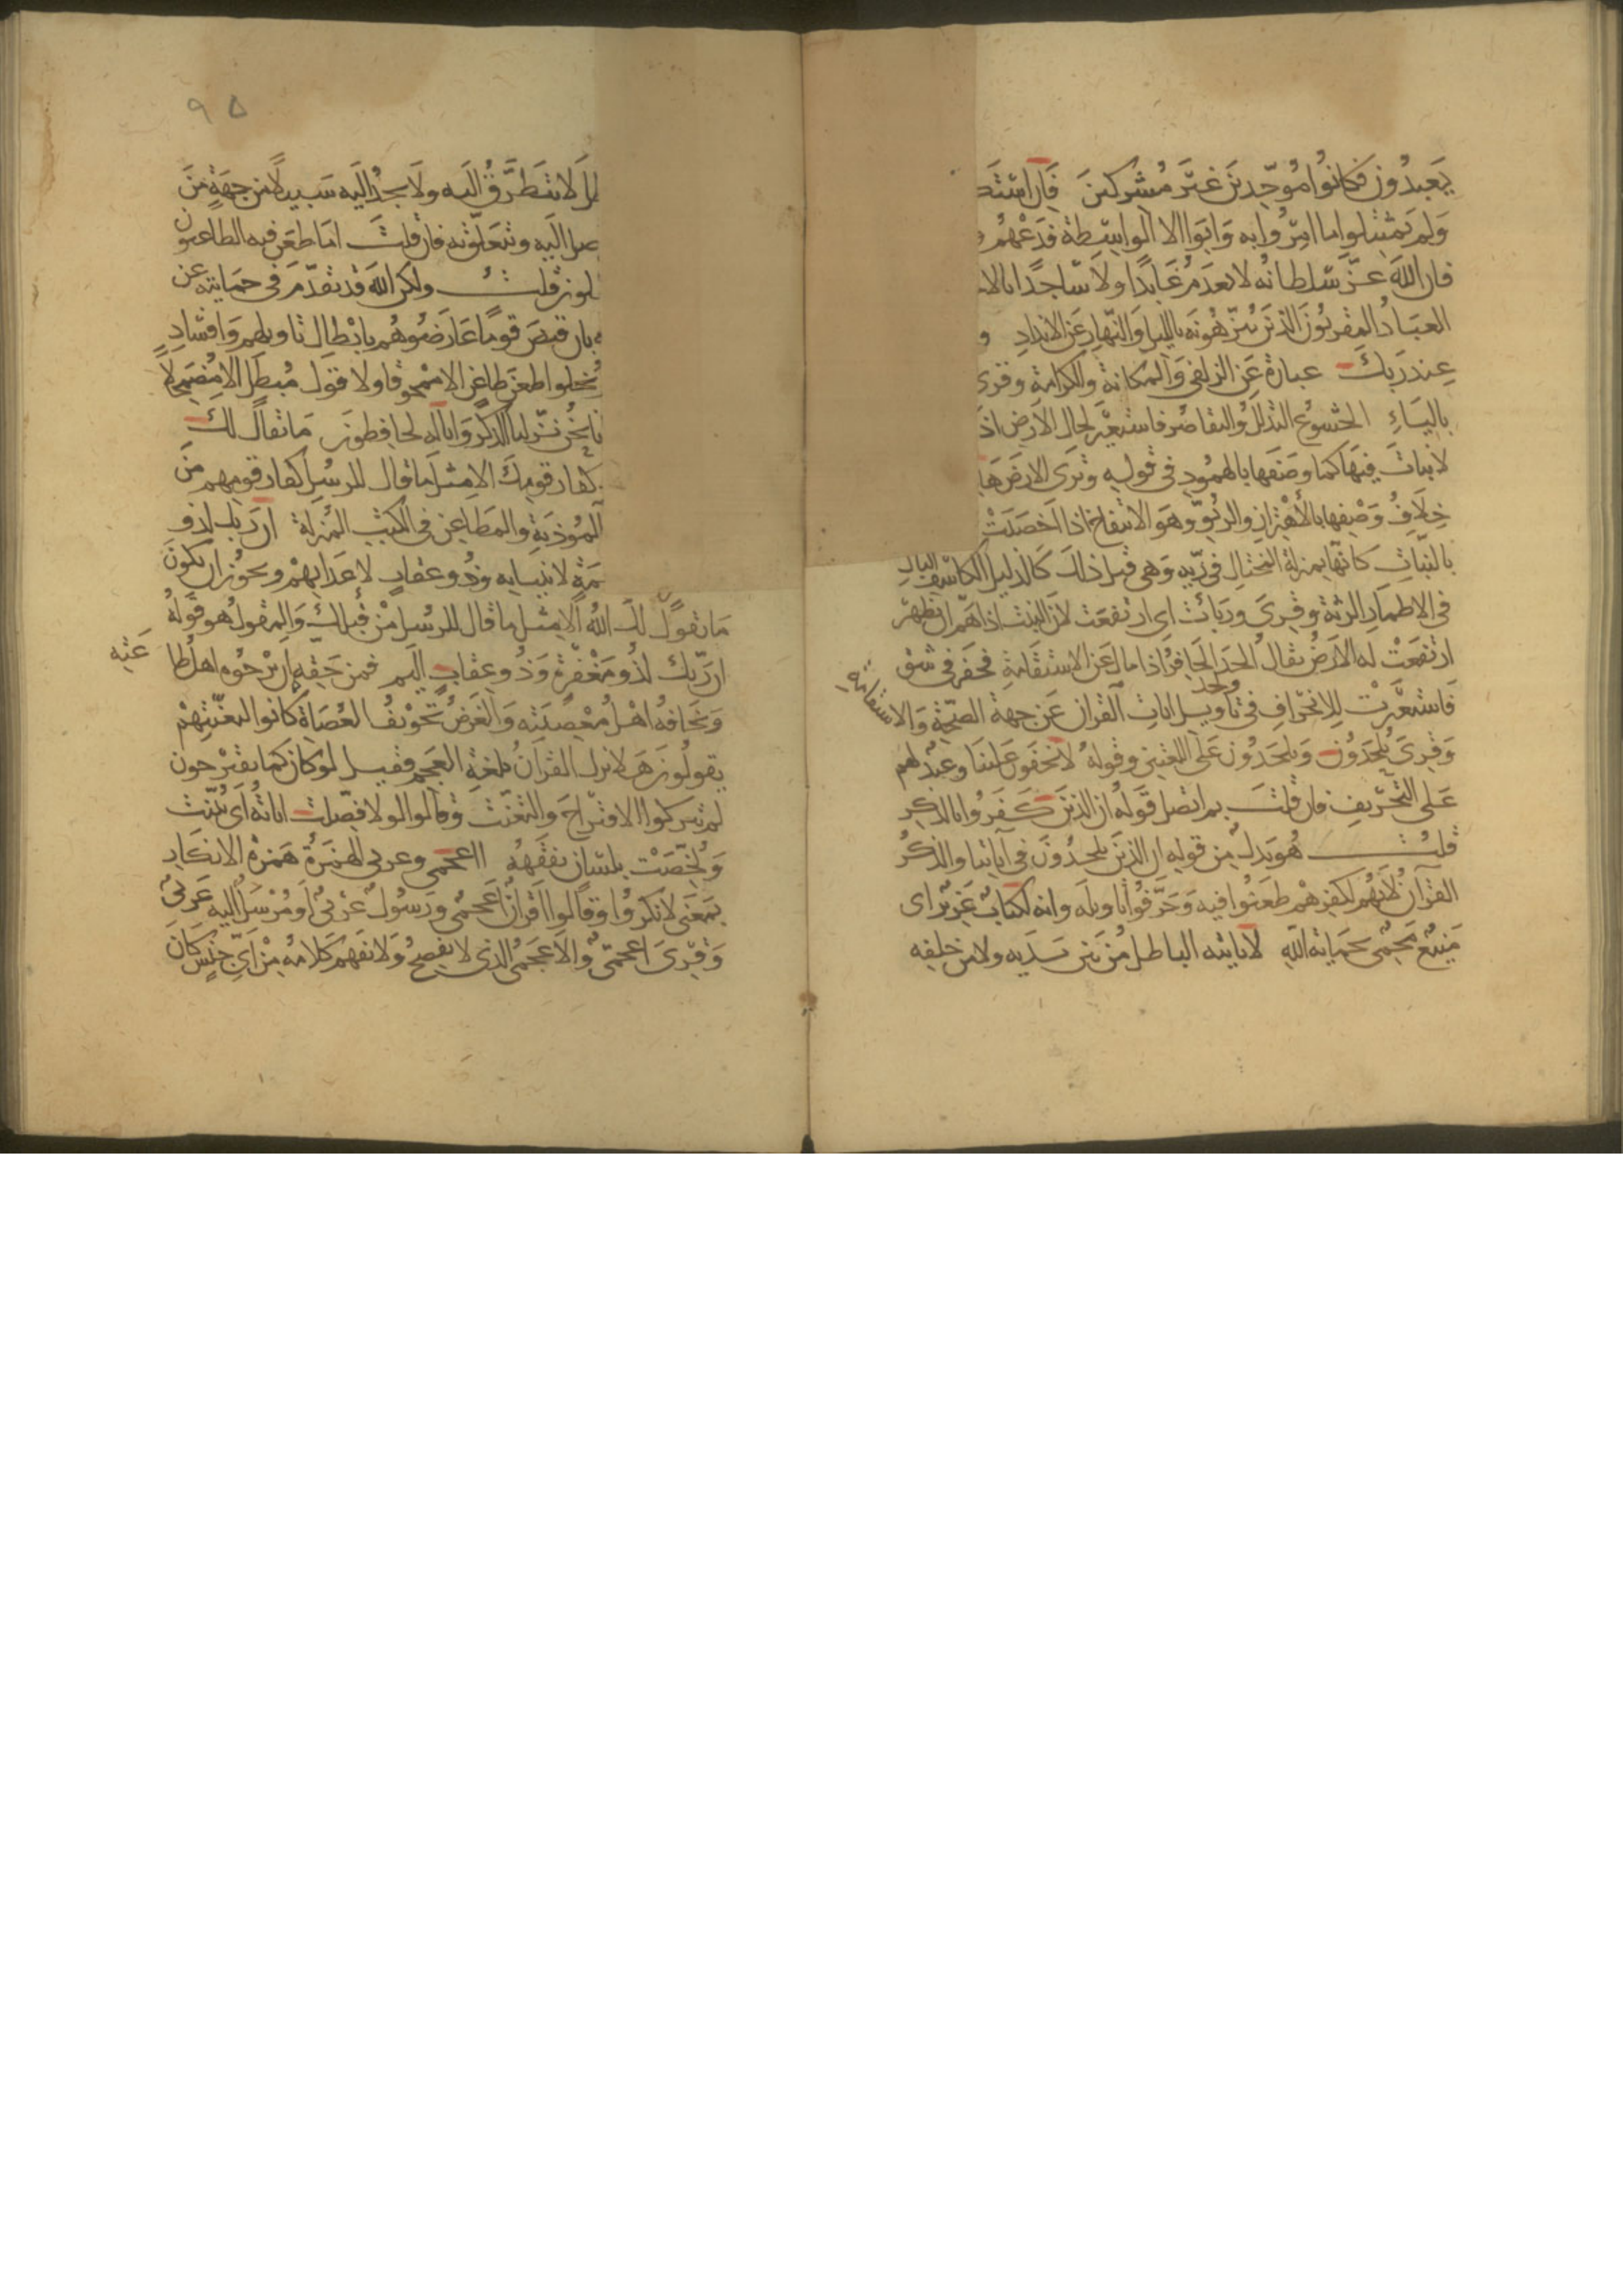 يعبدون فكانوا موحدين غير مشركين فان استك
ولم يمتثلوا ما امروا به وابوا الا الواسطة فدعهم و
فان الله عز سلطانه لا يعدم عابدا ولا ساجدا بالا
العباد المقربون الذين ينزهونه بالليل والنهار عن الانداد و
عند ربك عبارة عن الزلفى والمكانة والكرامة وقرى
بالياء الخشوع التذلل والتقاصر فاستعير لحال الارض اذا
لا نبات فيها كما وصفها بالهمود في قوله وترى الارض ها
خلاف وصفها بالاهتزاز والربو وهو الانتفاخ اذا اخصبت
بالنبات كانها بمنزلة المختال في زيه وهي قبل ذلك كالذليل الكاسف البال
في الاطمار الرثة وقرى وربأت اى ارتفعت لان النبت اذا هم ان يظهر
ارتفعت له الارض يقال الحد الحافر اذا مال عن الاستقامة فحفر في شق
ولحد
فاستعيرت للانحراف في تاويل ايات القران عن جهة الصحة والاستقامة
وقرى يلحدون ويلحدون على اللغتين وقوله لا يخفون علينا وعيد لهم
على التحريف فان قلت بم اتصل قوله ان الذين كفروا بالذكر
قلت هو بدل من قوله ان الذين يلحدون في آياتنا والذكر
القرآن لانهم لكفرهم طعنوا فيه وحرفوا تاويله وانه لكتاب عزيز اى
منيع محمى بحماية الله لا ياتيه الباطل من بين يديه ولا من خلفه
٩٥
لا يتطرق اليه ولا يجد اليه سبيلا من جهة من
صل اليه ويتعلق به فان قلت اما طعن فيه الطاعنون
لون قلت ولكن الله قد تقدم في حمايته عن
بان قيض قوما عارضوهم بابطال تاويلهم وافساد
يخلوا طعن طاعن الا ممحوقا ولا قول مبطل الا مضمحلا
نا نحن نزلنا الذكر وانا له لحافظون ما يقال لك
كفار قومك الا مثل ما قال للرسل كفار قومهم من
المؤذية والمطاعن في الكتب المنزلة ان ربك لذو
مة لانبيايه وذو عقاب لاعدايهم ويجوز ان يكون
ما يقول لك الله الا مثل ما قال للرسل من قبلك والمقول هو قوله
ان ربك لذو مغفرة وذو عقاب اليم فمن حقه ان يرجوه اهل طاعته
ويخافه اهل معصيته والغرض تخويف العصاة كانوا لتعنتهم
يقولون هلا نزل القرآن بلغة العجم فقيل لو كان كما يقترحون
لم يتركوا الاقتراح والتعنت وقالوا لولا فصلت اياته اى بينت
ولخصت بلسان نفقهه ااعجمى وعربى الهمزة همزة الانكار
بمعنى لانكروا وقالوا اقرآن اعجمى ورسول عربى او مرسل اليه عربى
وقرى اعجمى والاعجمى الذى لا يفصح ولا يفهم كلامه من اى جنس كان